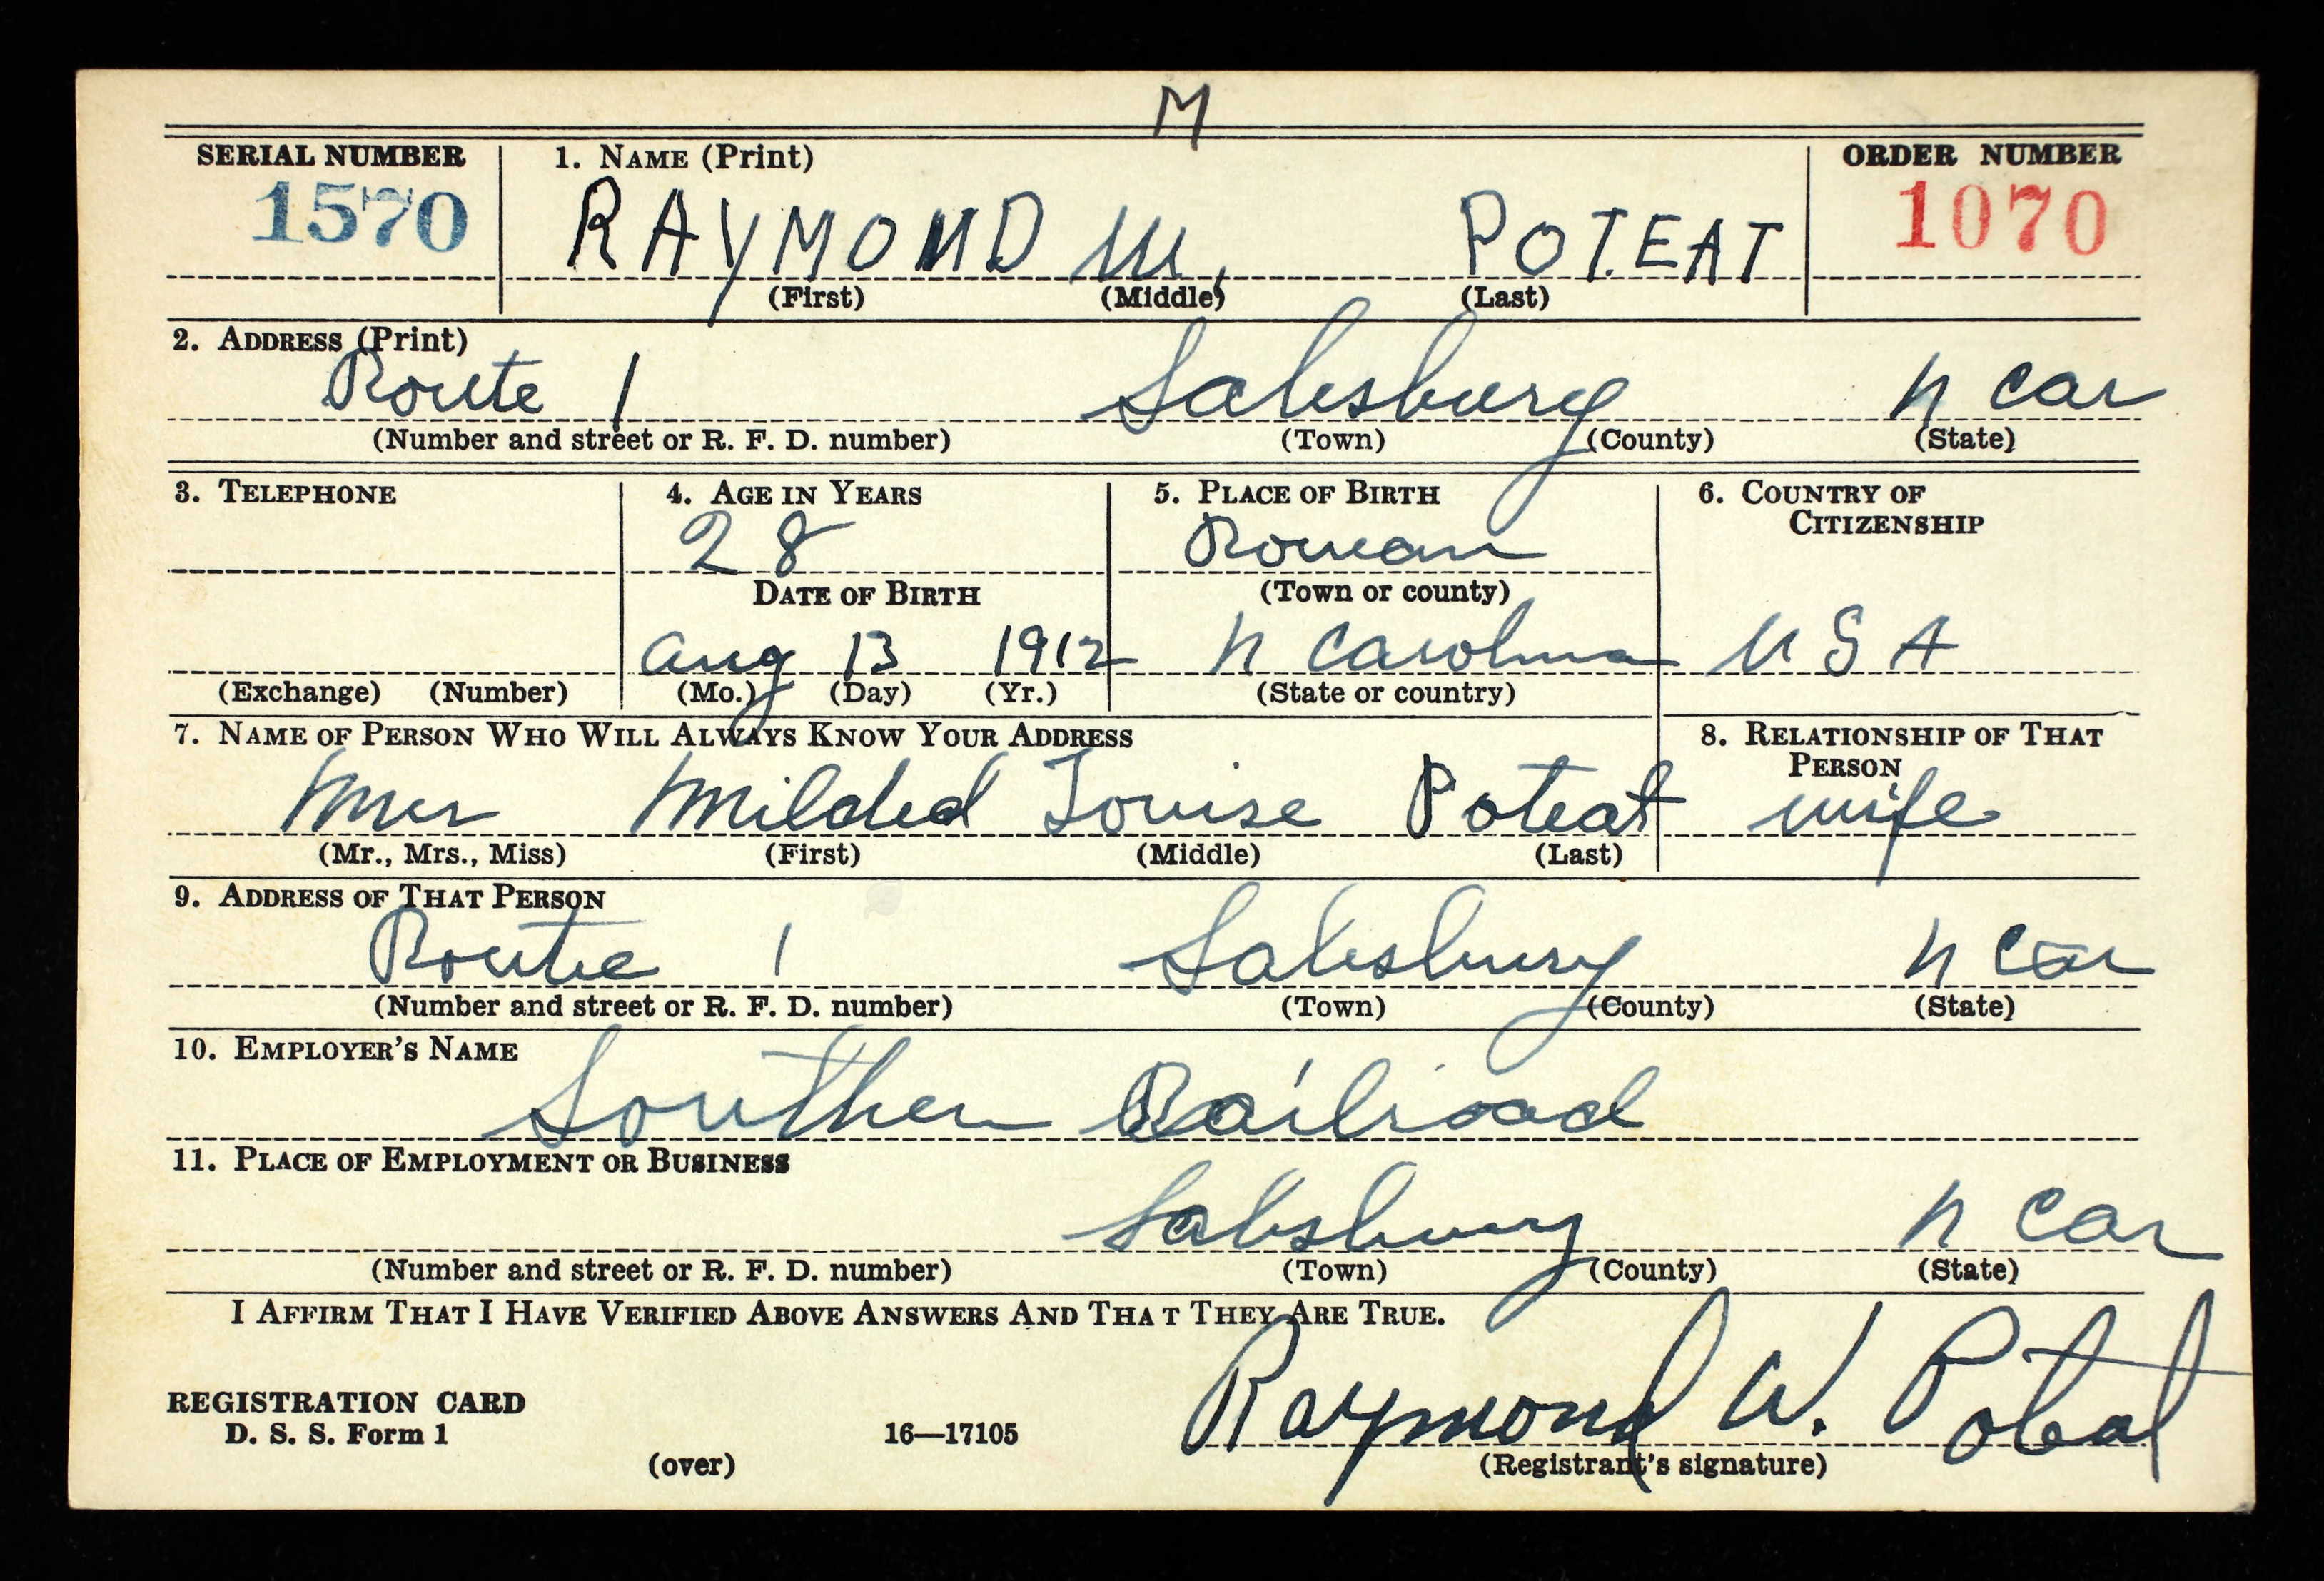 M
SERIAL NUMBER 1. NAME (Print) ORDER NUMBER
1570 RAYMOND W. POTEAT 1070
(First) (Middle) (Last)
2. ADDRESS (Print)
Route 1 Salisbury N Car
(Number and street or R. F. D. number) (Town) (County) (State)
3. TELEPHONE 4. AGE IN YEARS 5. PLACE OF BIRTH 6. COUNTRY OF CITIZENSHIP
28 Rowan
DATE OF BIRTH (Town or county)
Aug 13 1912 N Carolina U S A
(Exchange) (Number) (Mo.) (Day) (Yr.) (State or country)
7. NAME OF PERSON WHO WILL ALWAYS KNOW YOUR ADDRESS 8. RELATIONSHIP OF THAT PERSON
Mrs Milded Louise Poteat wife
(Mr., Mrs., Miss) (First) (Middle) (Last)
9. ADDRESS OF THAT PERSON
Route 1 Salisbury N Car
(Number and street or R. F. D. number) (Town) (County) (State)
10. EMPLOYER'S NAME
Southern Railroad
11. PLACE OF EMPLOYMENT OR BUSINESS
Salisbury N Car
(Number and street or R. F. D. number) (Town) (County) (State)
I AFFIRM THAT I HAVE VERIFIED ABOVE ANSWERS AND THAT THEY ARE TRUE.
Raymond W. Poteat
REGISTRATION CARD
D. S. S. Form 1 16—17105
(over) (Registrant's signature)